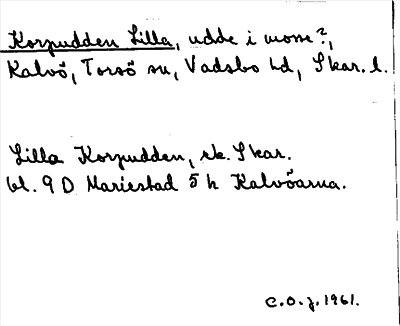 Korpudden Lilla, udde i mosse?,
Kalvö, Torsö sn, Vadsbo hd, Skar. l.
Lilla Korpudden, ek. Skar.
bl. 9 D Mariestad 5 h Kalvöarna.
C.O.J. 1961.